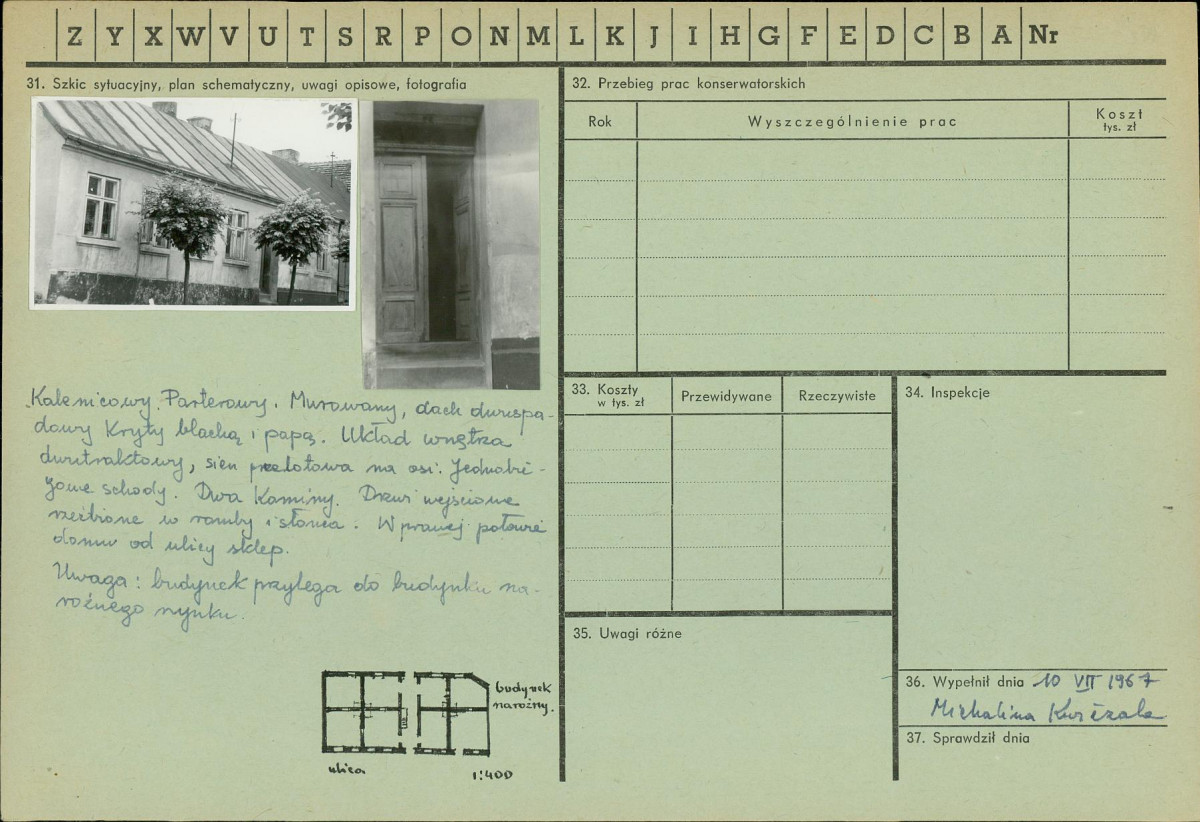 Z Y X W V U T S R P O N M L K J I H G F E D C B A Nr
31. Szkic sytuacyjny, plan schematyczny, uwagi opisowe, fotografia
Kalenicowy. Parterowy. Murowany, dach dwuspa-
dowy kryty blachą i papą. Układ wnętrza
dwutraktowy, sień przelotowa na osi. Jednobie-
żowe schody. Dwa kominy. Drzwi wejściowe
rzeźbione w romby i słońca. W prawej połowie
domu od ulicy sklep.
Uwaga: budynek przylega do budynku na-
rożnego rynku.
budynek
narożny.
ulica
1:400
32. Przebieg prac konserwatorskich
Rok
Wyszczególnienie prac
Koszt
tys. zł
33. Koszty
w tys. zł
Przewidywane
Rzeczywiste
34. Inspekcje
35. Uwagi różne
36. Wypełnił dnia 10 VII 1967
Michalina
37. Sprawdził dnia